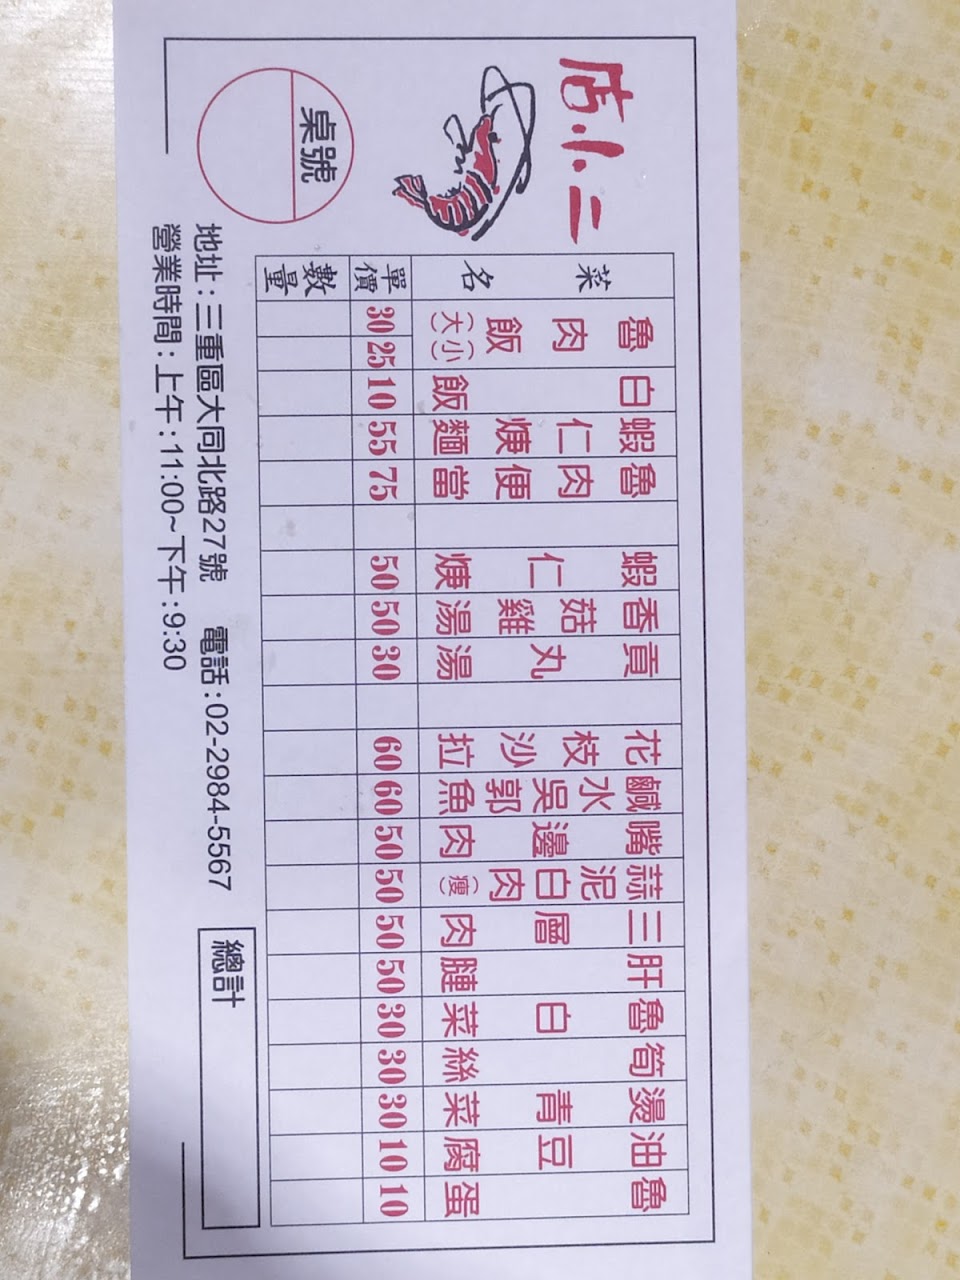 店小二
桌號
菜名 單價 數量
魯肉飯(大) 30
(小) 25
白飯 10
蝦仁焿麵 55
魯肉便當 75
蝦仁焿 50
香菇雞湯 50
貢丸湯 30
花枝沙拉 60
鹹水吳郭魚 60
嘴邊肉 50
蒜泥白肉(瘦) 50
三層肉 50
肝腱 50
魯白菜 30
筍絲 30
燙青菜 30
油豆腐 10
魯蛋 10
總計
地址:三重區大同北路27號 電話:02-2984-5567
營業時間:上午:11:00~下午:9:30